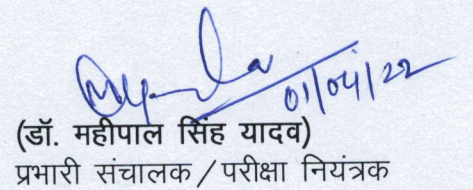 01/04/22
(डॉ. महीपाल सिंह यादव)
प्रभारी संचालक / परीक्षा नियंत्रक